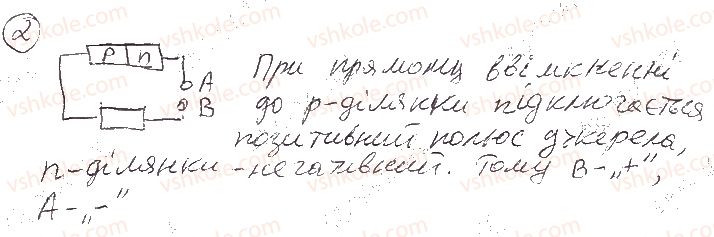 2
p n
A
B
При прямому ввімкненні
до p-ділянки підключається
позитивний полюс джерела,
n-ділянки - негативний. Тому B - „+",
A - „-"
vshkole.com